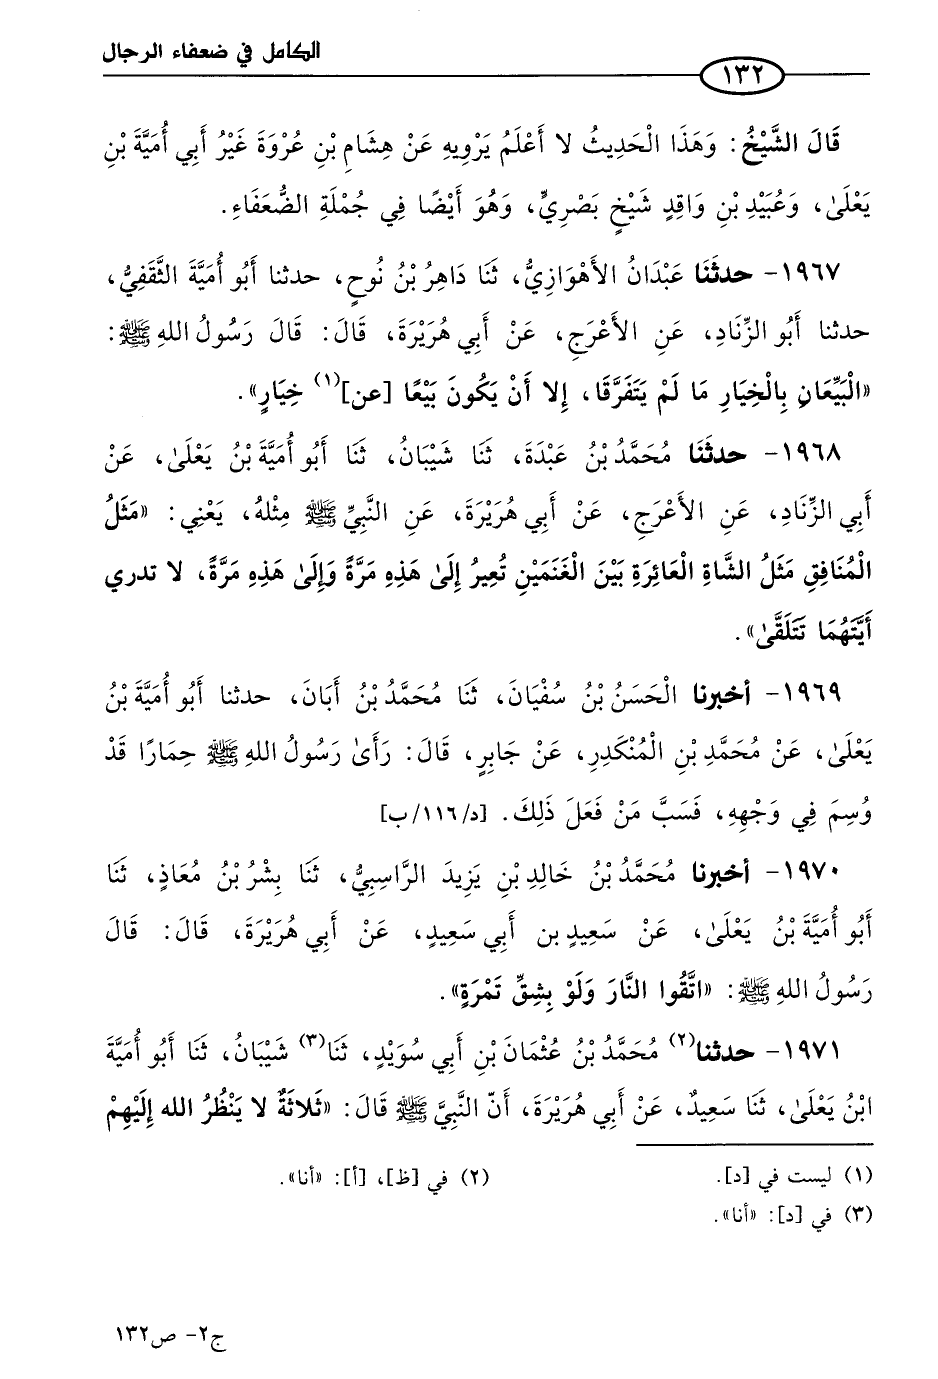 الكامل في ضعفاء الرجال
١٣٢
قَالَ الشَّيْخُ: وَهَذَا الْحَدِيثُ لا أَعْلَمُ يَرْوِيهِ عَنْ هِشَامِ بْنِ عُرْوَةَ غَيْرُ أَبِي أُمَيَّةَ بْنِ
يَعْلَىٰ، وَعُبَيْدِ بْنِ وَاقِدٍ شَيْخٍ بَصْرِيٍّ، وَهُوَ أَيْضًا فِي جُمْلَةِ الضُّعَفَاءِ.
١٩٦٧- حدثَنَا عَبْدَانُ الأَهْوَازِيُّ، ثَنَا دَاهِرُ بْنُ نُوحٍ، حدثنا أَبُو أُمَيَّةَ الثَّقَفِيُّ،
حدثنا أَبُو الزِّنَادِ، عَنِ الأَعْرَجِ، عَنْ أَبِي هُرَيْرَةَ، قَالَ: قَالَ رَسُولُ اللهِ ﷺ:
«الْبَيِّعَانِ بِالْخِيَارِ مَا لَمْ يَتَفَرَّقَا، إِلا أَنْ يَكُونَ بَيْعًا [عن](١) خِيَارٍ».
١٩٦٨- حدثَنَا مُحَمَّدُ بْنُ عَبْدَةَ، ثَنَا شَيْبَانُ، ثَنَا أَبُو أُمَيَّةَ بْنُ يَعْلَىٰ، عَنْ
أَبِي الزِّنَادِ، عَنِ الأَعْرَجِ، عَنْ أَبِي هُرَيْرَةَ، عَنِ النَّبِيِّ ﷺ مِثْلهُ، يَعْنِي: «مَثَلُ
الْمُنَافِقِ مَثَلُ الشَّاةِ الْعَائِرَةِ بَيْنَ الْغَنَمَيْنِ تُعِيرُ إِلَىٰ هَذِهِ مَرَّةً وَإِلَىٰ هَذِهِ مَرَّةً، لا تدري
أَيَّتَهُمَا تَتَلَقَّىٰ».
١٩٦٩- أخبرنا الْحَسَنُ بْنُ سُفْيَانَ، ثَنَا مُحَمَّدُ بْنُ أَبَانَ، حدثنا أَبُو أُمَيَّةَ بْنُ
يَعْلَىٰ، عَنْ مُحَمَّدِ بْنِ الْمُنْكَدِرِ، عَنْ جَابِرٍ، قَالَ: رَأَىٰ رَسُولُ اللهِ ﷺ حِمَارًا قَدْ
وُسِمَ فِي وَجْهِهِ، فَسَبَّ مَنْ فَعَلَ ذَلِكَ. [د/١١٦/ب]
١٩٧٠- أخبرنا مُحَمَّدُ بْنُ خَالِدِ بْنِ يَزِيدَ الرَّاسِبِيُّ، ثَنَا بِشْرُ بْنُ مُعَاذٍ، ثَنَا
أَبُو أُمَيَّةَ بْنُ يَعْلَىٰ، عَنْ سَعِيدِ بن أَبِي سَعِيدٍ، عَنْ أَبِي هُرَيْرَةَ، قَالَ: قَالَ
رَسُولُ اللهِ ﷺ: «اتَّقُوا النَّارَ وَلَوْ بِشِقِّ تَمْرَةٍ».
١٩٧١- حدثنا(٢) مُحَمَّدُ بْنُ عُثْمَانَ بْنِ أَبِي سُوَيْدٍ، ثَنَا(٣) شَيْبَانُ، ثَنَا أَبُو أُمَيَّةَ
ابْنُ يَعْلَىٰ، ثَنَا سَعِيدٌ، عَنْ أَبِي هُرَيْرَةَ، أَنّ النَّبِيَّ ﷺ قَالَ: «ثَلاثَةٌ لا يَنْظُرُ الله إِلَيْهِمْ
(١) ليست في [د]. (٢) في [ظ]، [أ]: «أنا».
(٣) في [د]: «أنا».
ج٢- ص١٣٢